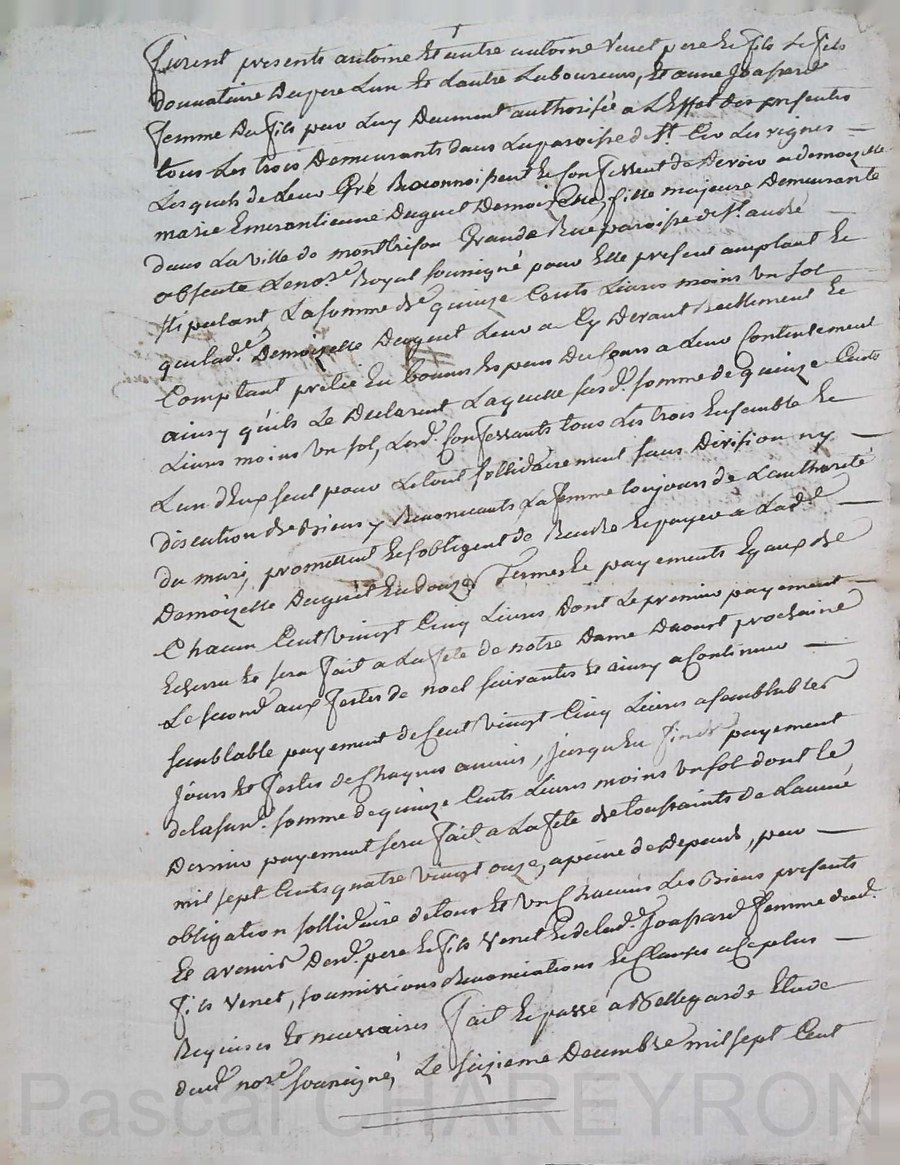 furent presents antoine et autre antoine Venet pere et fils le fils
donnataire du pere Lun et Lautre Laboureurs, et anne Joassard
femme du fils par Luy Dument authorisée a L'Effet des presentes
tous Les trois Demeurants dans La paroisse de St. Cir Les vignes —
Lesquels de Leur Gré Reconnoissent et Confessent de devoir a demoizelle
marie Emerantienne Duguet Demoizelle, fille majeure Demeurante
dans La ville de montbrison Grande Rüe paroisse de St. andré —
absente Le nore. Royal soussigné pour Elle present acceptant et
stipulant La somme de quinze Cents Livres moins Un sol
que lade. Demoizelle Duguet Leur a Cy Devant Reellement et
Comptant pretée En bonnes Especes Du Cours a Leur Contentement
ainsy qu'ils Le Declarent Laquelle susd. somme de quinze Cents
Livres moins Un sol, Lesd. Confessants tous Les trois Ensemble et
L'un d'Eux seul pour Le tout sollidairement sans Division ny —
discution de Biens y Renoncants, La femme toujours de L'authorité
du mari, promettent et s'obligent de Rendre et payer a Lade. —
Demoizelle Duguet En douze Termes et payements Egaux de
Chacun Cent Vingt Cinq Livres, Dont Le premier payement —
Echerra et sera fait a La fete de notre Dame Daoust prochaine
Le second aux festes de noel suivantes et ainsy a Continuer —
semblable payement de Cent Vingt Cinq Livres a semblables
jours et festes de Chaques années, jusqu'en fin de payement
de la susd. somme de quinze Cents Livres moins Un sol dont le
Dernier payement sera fait a La fete de toussaints de L'année
mil sept Cents quatre vingt onze, a peine de Depens, par —
obligation sollidaire de tous et Un Chacuns Les Biens presents
Et avenir Desd. pere et fils Venet et de lad. Joassard femme dud.
fils Venet, soumissions Renonciations et Clauses a Ce plus —
Requises et necessaires fait et passé a Bellegarde Etude
dud. nore. soussigné, Le seizieme Decembre mil sept Cent
Pascal CHAREYRON